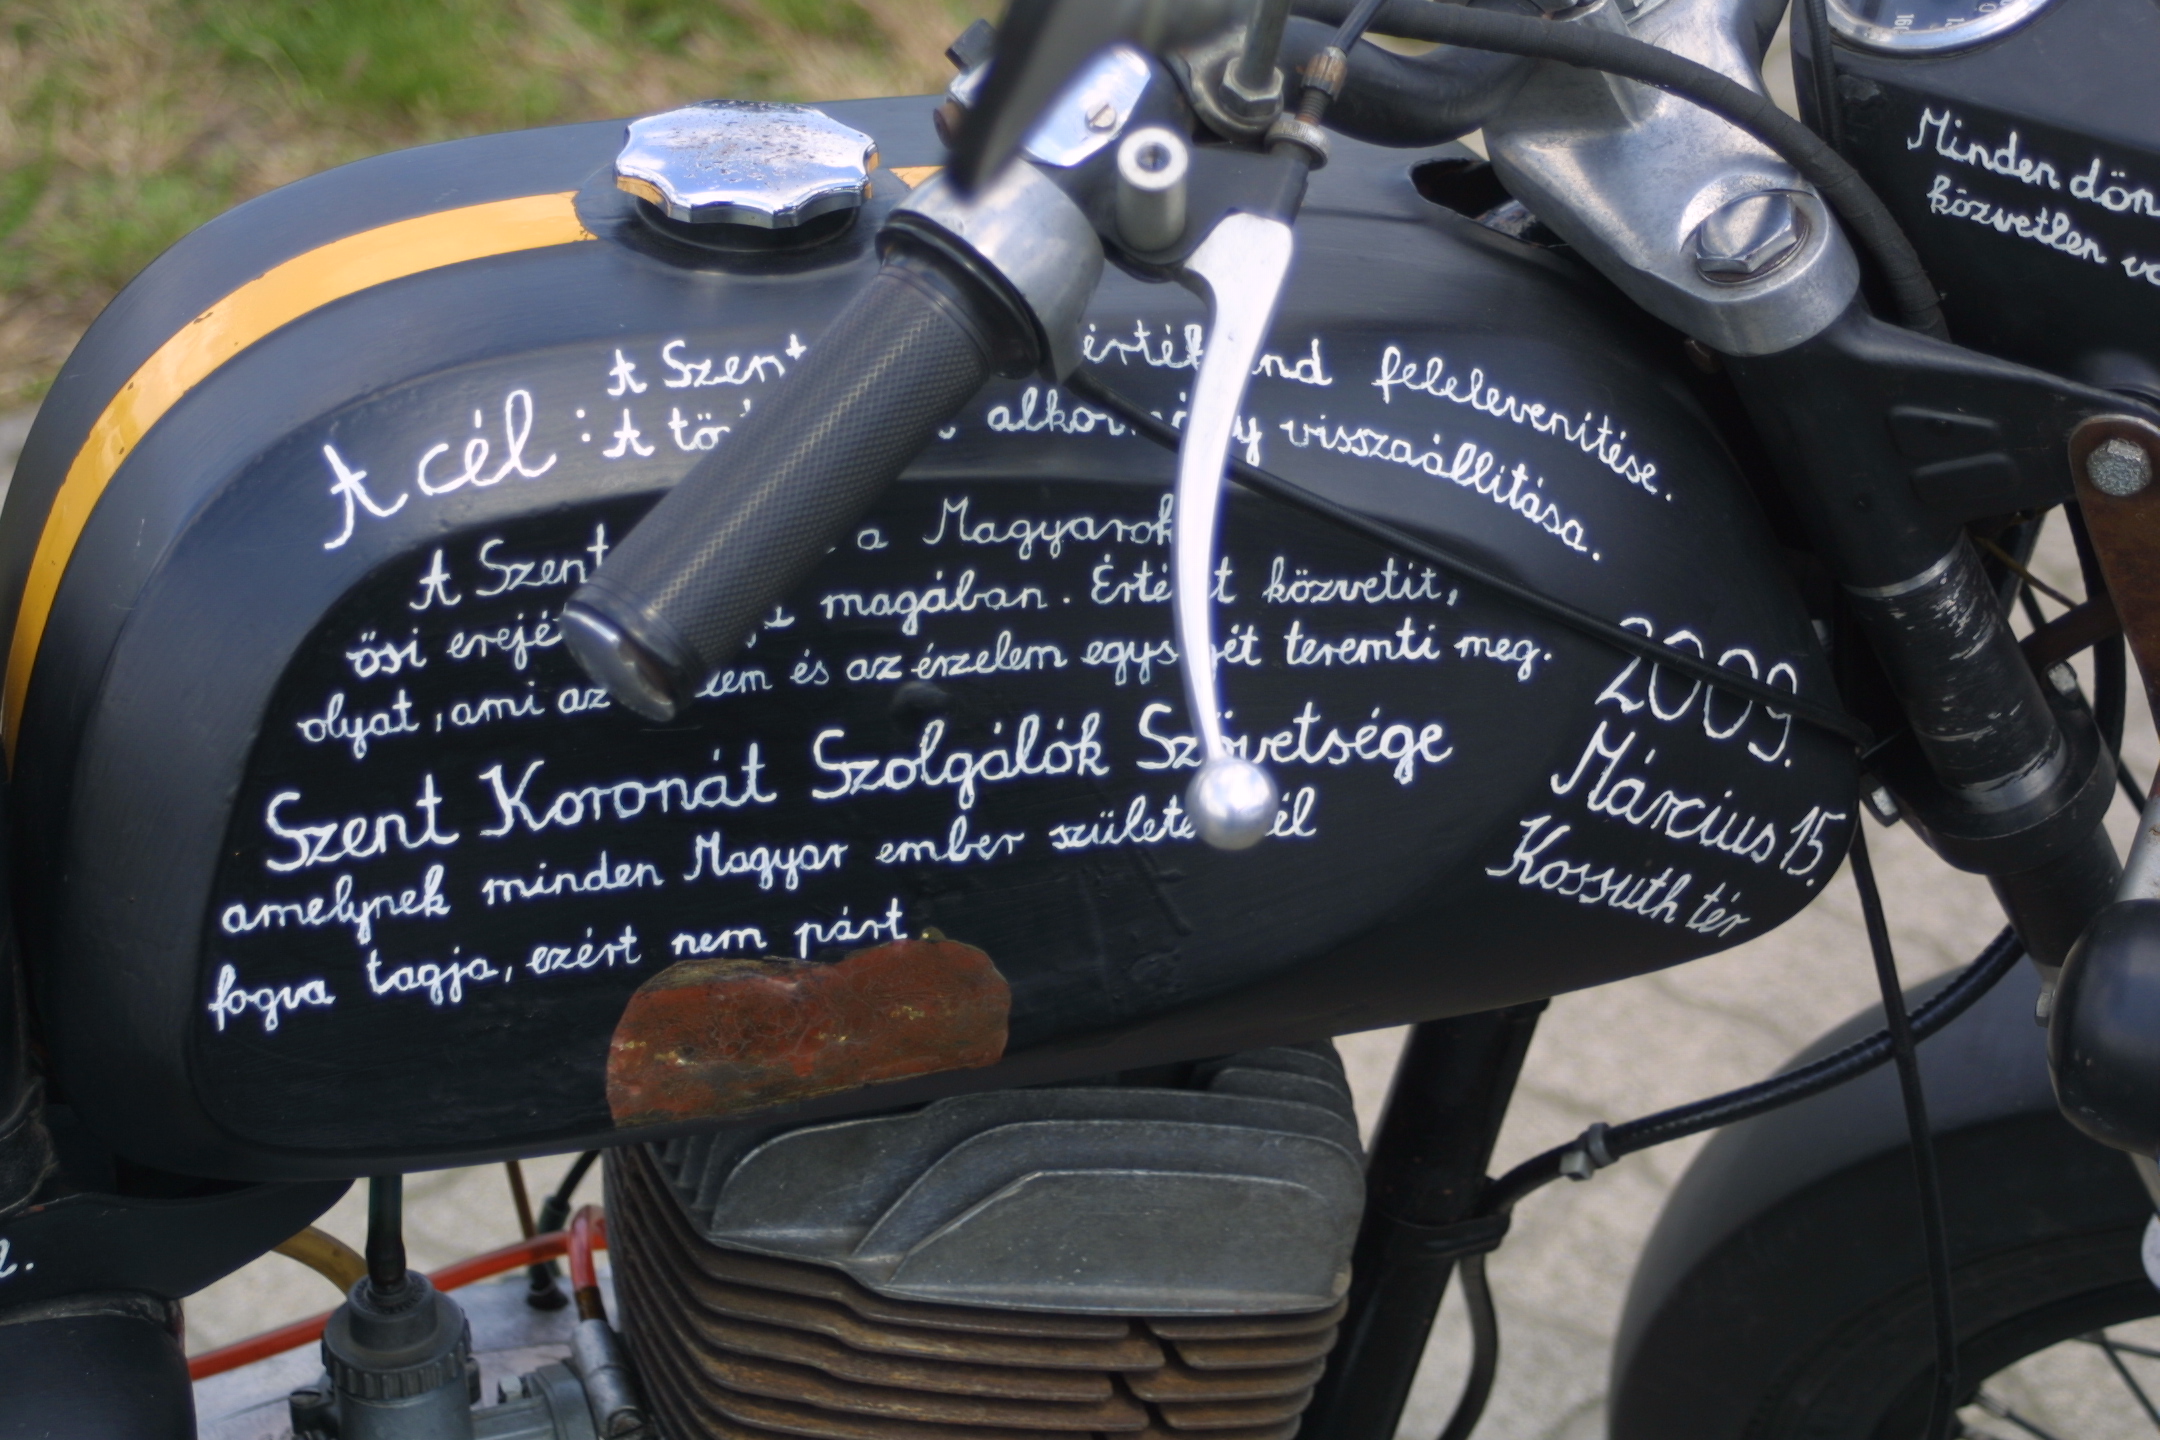 A cél :
A Szent érték felelevenítése.
A alkotmány visszaállítása.
A Szent a Magyarok
ősi erejét magában. Értéket közvetít,
olyat, ami az és az érzelem egységét teremti meg.
Szent Koronát Szolgálók Szövetsége
amelynek minden Magyar ember születésénél
fogva tagja, ezért nem párt.
2009.
Március 15.
Kossuth tér
Minden
közvetlen